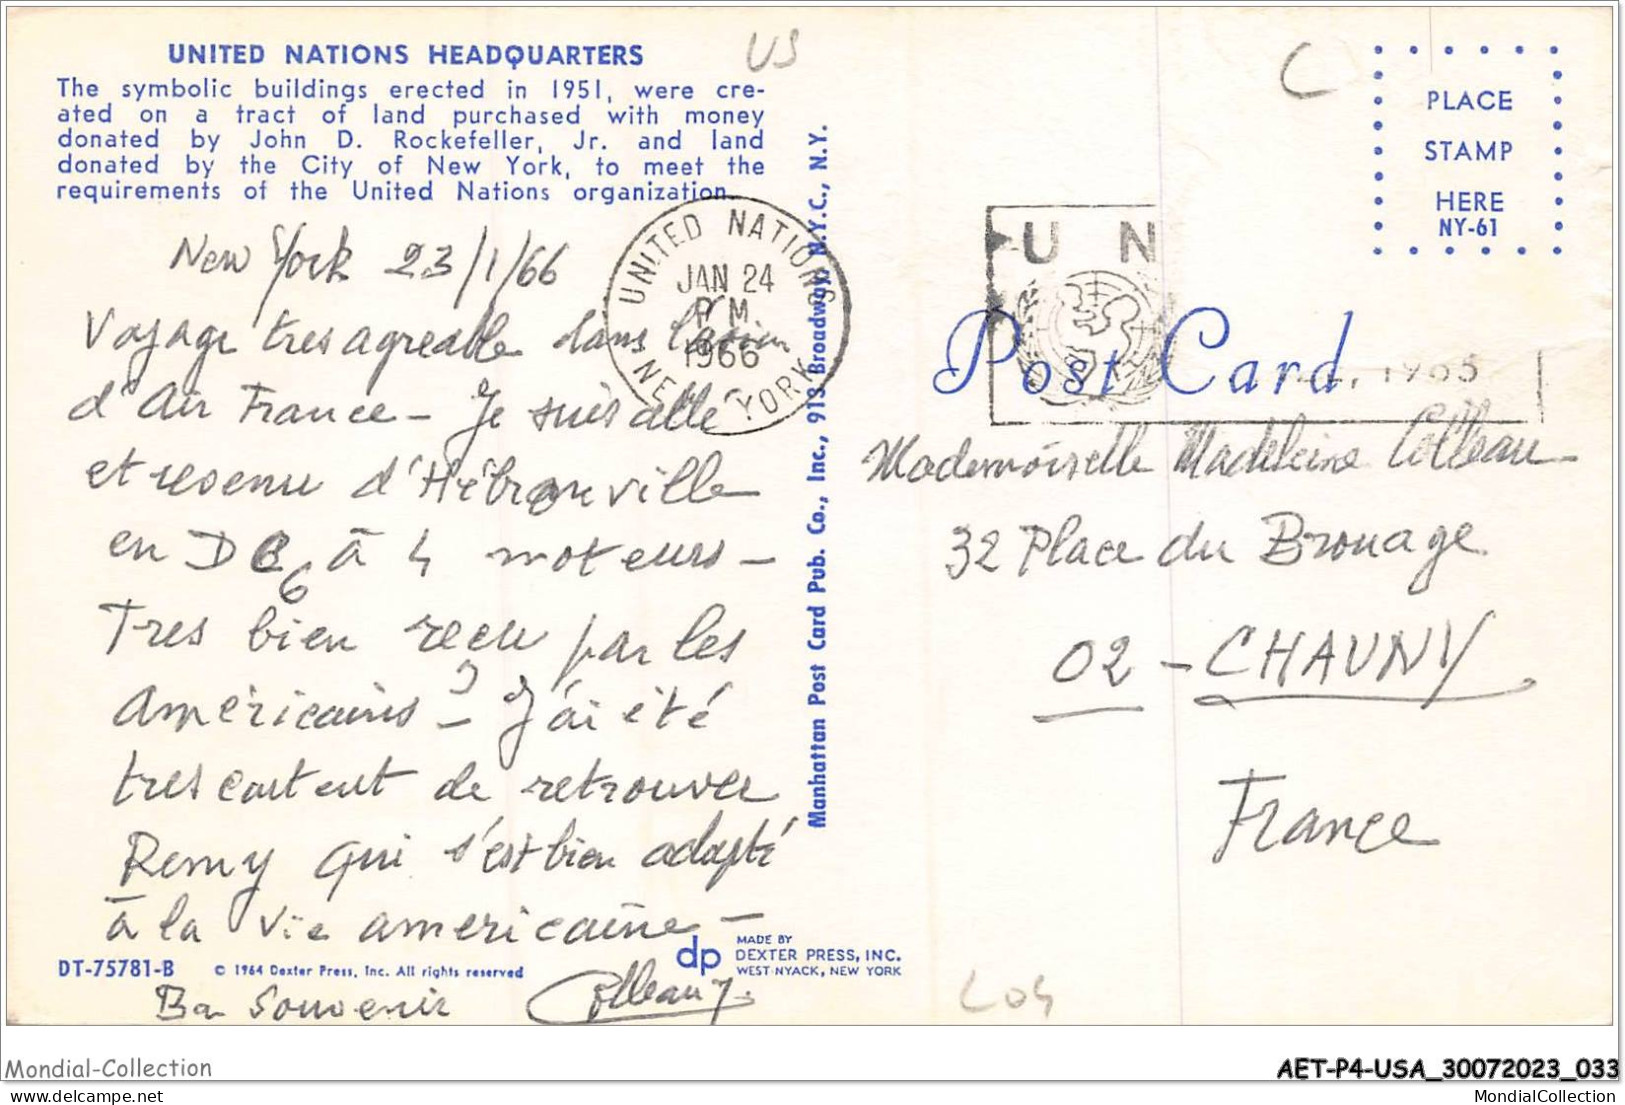 UNITED NATIONS HEADQUARTERS
The symbolic buildings erected in 1951, were cre-
ated on a tract of land purchased with money
donated by John D. Rockefeller, Jr. and land
donated by the City of New York, to meet the
requirements of the United Nations organization.
New York 23/1/66
Voyage tres agreable dans l'avion
d'Air France - Je suis allé
et revenu d'Hébronville
en DC6 à 4 moteurs -
Tres bien reçu par les
américains - J'ai été
tres content de retrouver
Remy qui s'est bien adapté
à la vie americaine -
Bon Souvenir
Colleau
DT-75781-B
© 1964 Dexter Press, Inc. All rights reserved
dp
MADE BY
DEXTER PRESS, INC.
WEST NYACK, NEW YORK
Manhattan Post Card Pub. Co., Inc., 913 Broadway, N.Y.C., N.Y.
UNITED NATIONS
JAN 24
PM
1966
NEW YORK
US
C
PLACE
STAMP
HERE
NY-61
UN
1965
Post Card
Mademoiselle Madeleine Colleau
32 Place du Brouage
02 - CHAUNY
France
L04
Mondial-Collection
AET-P4-USA_30072023_033
MondialCollection
MondialCollection